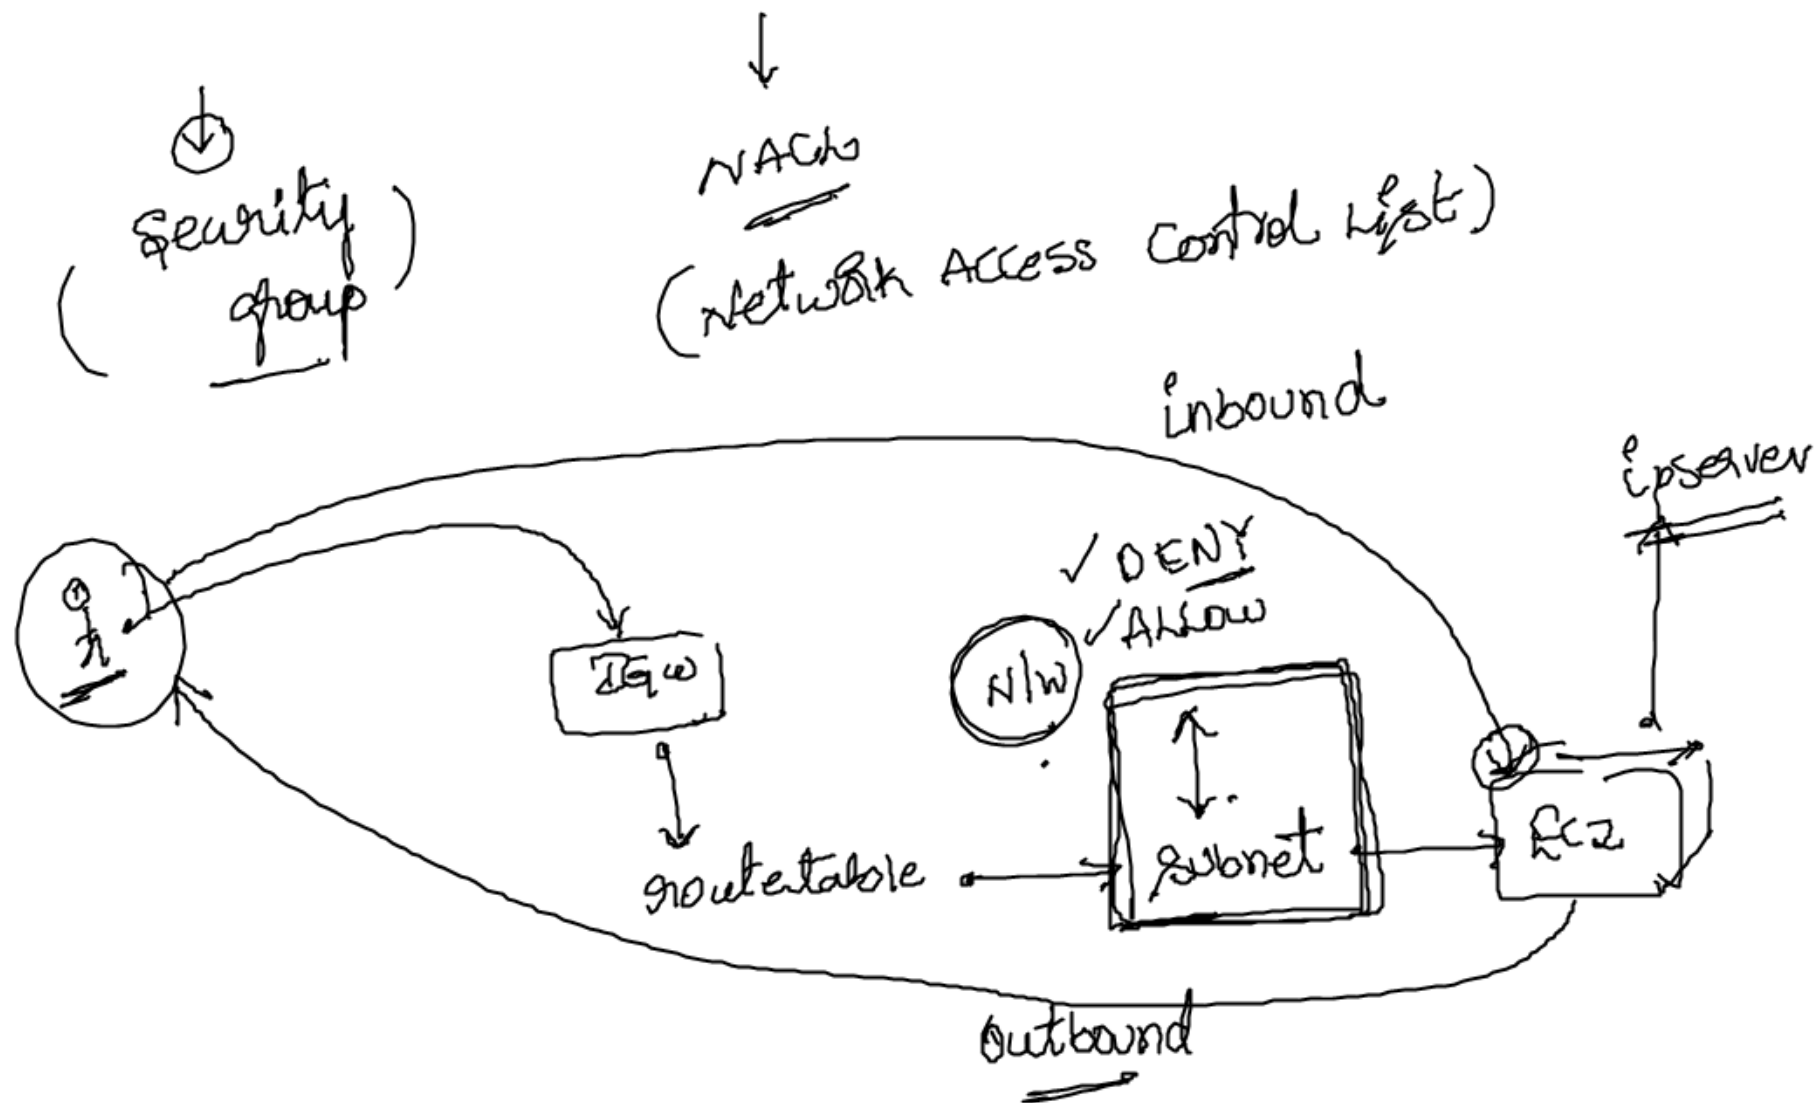 Security
group
NACL
(Network Access Control List)
inbound
ipserver
✓ DENY
✓ ALLOW
IGW
N/W
routetable
subnet
EC2
outbound